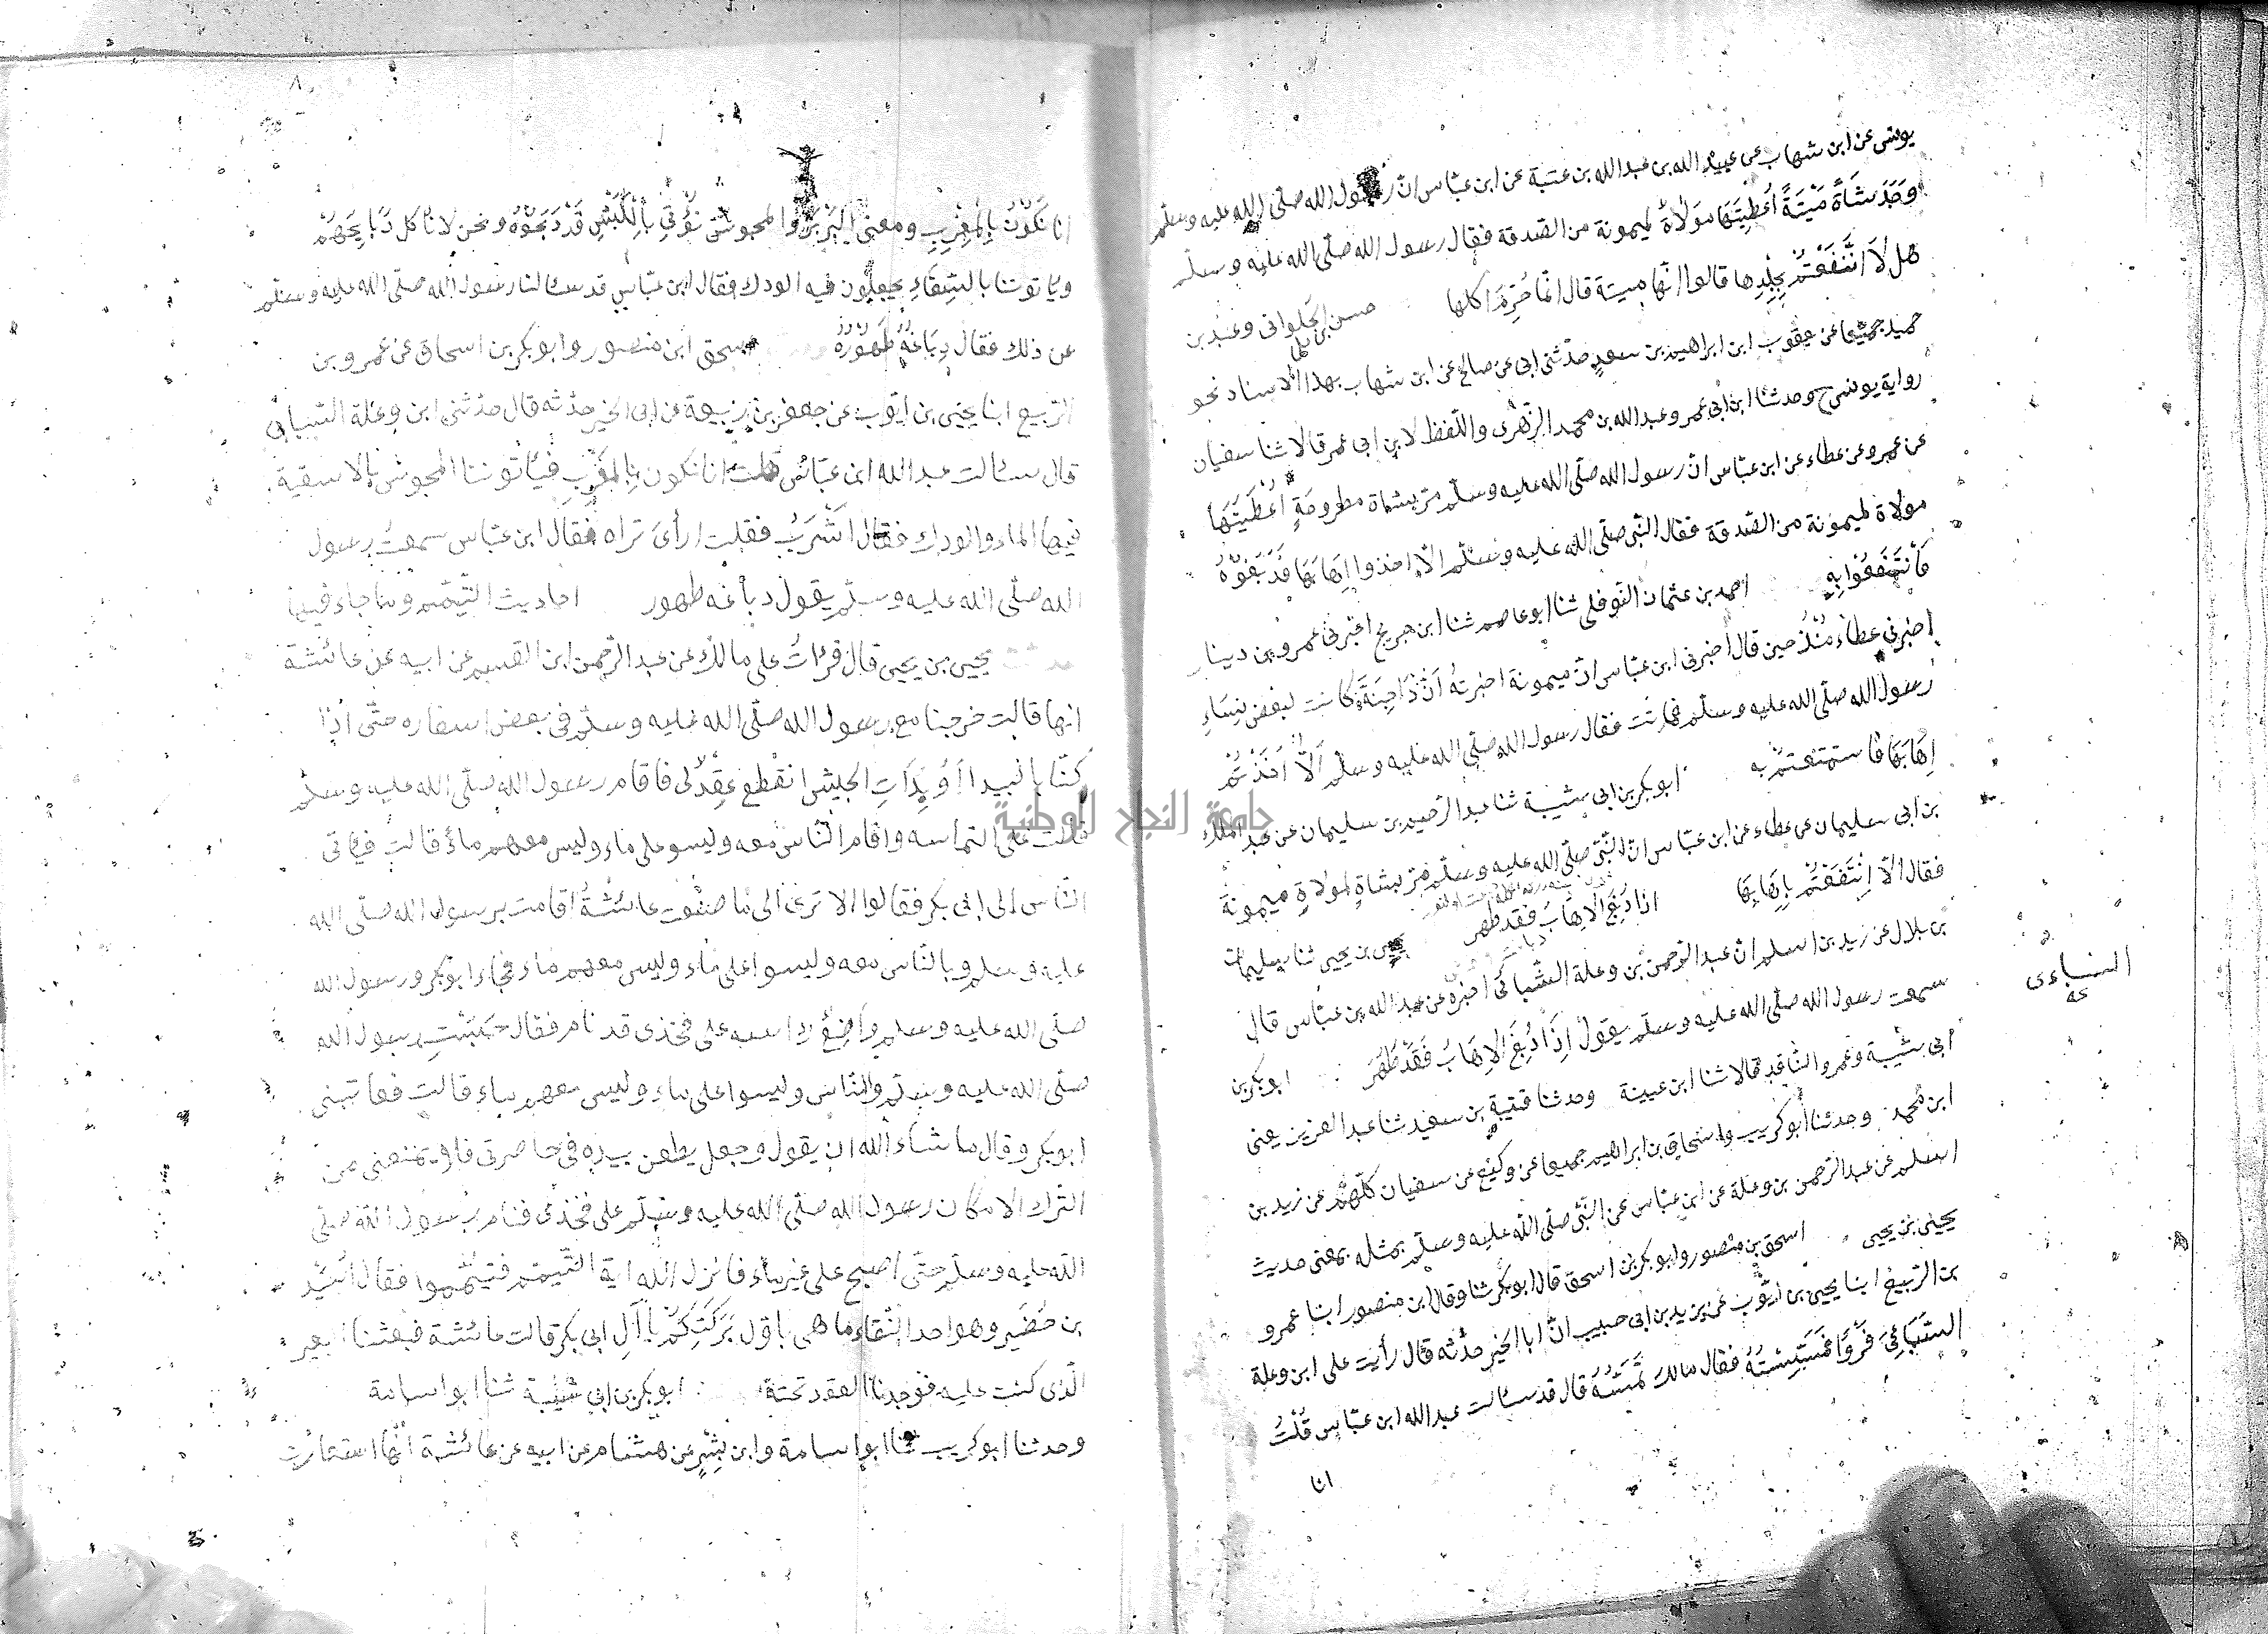 يونس عن ابن شهاب عن عبيد الله بن عبد الله بن عتبة عن ابن عباس انّ رسول الله صلّى الله عليه وسلّم
وَجَدَ شَاةً مَيْتَةً أُعْطِيَتَهَا مَوْلَاةٌ لميمونة من الصّدقة فقال رسول الله صلّى الله عليه وسلّم
هل لَا انْتَفَعْتُمْ بِجِلْدِها قالوا انّها ميتة قال انّما حُرِّمَ اكلها حسن الحلوانى وعبد بن
حميد جميعا عن يعقوب ابن ابراهيم بن سعدٍ حدّثنى ابى عن صالح عن ابن شهاب بهذا الاسناد نحو
رواية يونس ح وحدثنا ابن ابى عمر وعبد الله بن محمد الزّهرى واللّفظ لابن ابى عمر قالا ثنا سفيان
عن عمرو عن عطاء عن ابن عباس انّ رسول الله صلّى الله عليه وسلّم مرّ بشاة مطروحةٍ أُعْطِيَتَهَا
مولاة لميمونة من الصّدقة فقال النّبى صلّى الله عليه وسلّم الّا اخذوا إهَابَهَا فَدَبَغُوْهُ
فَانْتَفَعُوْا بِهِ احمد بن عثمان النّوفلى ثنا ابو عاصم ثنا ابن جريج اخبرنى عمرو بن دينار
اخبرنى عطاء مُنْذُ حين قال اخبرنى ابن عبّاس انّ ميمونة اخبرتهُ اَنَّ دَاجِنَةً كانت لبعض نِسَاءِ
رسول الله صلّى الله عليه وسلّم فماتت فقال رسول الله صلّى الله عليه وسلّم اَلَّا اَخَذْتُمْ
اِهَابَهَا فاستمتعتم به ابو بكر بن ابى شيبة ثنا عبد الرّحيم بن سليمان عن عبد الملك
بن ابى سليمان عن عطاء عن ابن عبّاس انّ النّبىّ صلّى الله عليه وسلّم مرّ بشاةٍ لمولاةٍ لميمونةَ
فقال الّا اِنْتَفَعْتُمْ بِاِهَابِهَا اذا دُبِغَ الاِهَابُ فقد طهر يحيى بن يحيى ثنا سليمان
بن بلال عن زيد بن اسلم انّ عبد الرّحمن بن وعلة السّبائى اخبرهُ عن عبد الله بن عبّاس قال
النساءى
سمعت رسول الله صلّى الله عليه وسلّم يقول اِذَا دُبِغَ الاِهَابُ فَقَدْ طَهُرَ ابو بكر بن
ابى شيبة وعمرو النّاقد قالا ثنا ابن عيينة وحدثنا قتيبة بن سعيد ثنا عبد العزيز يعنى
ابن محمد وحدثنا ابو كريب واسحاق بن ابراهيم جميعا عن وكيع عن سفيان كلّهم عن زيد بن
اسلم عن عبد الرّحمن بن وعلة عن ابن عبّاس عن النّبى صلّى الله عليه وسلّم بمثله بمعنى حديث
يحيى بن يحيى اسحق بن منصور وابو بكر بن اسحق قال ابو بكر ثنا وقال ابن منصور ابنا عمرو
بن الرّبيع ابنا يحيى بن ايّوب عن يزيد بن ابى حبيب انّ ابا الخير حدّثه قال رأيت على ابن وعلة
السَّبَاءِىَّ فَرْوًا فمسسته فقال مالك تَمَسُّهُ قال قد سئالت عبد الله ابن عبّاس قُلْتُ
انا
انا نَكُوْنُ بِالمَغْرِبِ ومعنا البَرْبَرُ والمجوسُ نُؤْتَى بِالْكَبْشِ قَدْ ذَبَحُوْهُ ونحن لا نأكل ذَبَايِحَهُمْ
ويأتوننا بالسِّقَاءِ يجعلون فيه الودك فقال ابن عبّاس قد سئالنا رسول الله صلّى الله عليه وسلّم
عن ذلك فقال دِبَاغُهُ طَهُوْرُهُ اسحق ابن منصور وابو بكر بن اسحاق عن عمرو بن
الرّبيع ابنا يحيى بن ايّوب عن جعفر بن ربيعة عن ابى الخير حدّثه قال حدّثنى ابن وعلة السّبائى
قال سئالت عبد الله ابن عبّاس قلت انا نكون بالمَغْرِبِ فيأتوننا المجوس بالاسقية
فيها الماء والودك فقال اشْرَبْ فقلت ارأى تراه فقال ابن عبّاس سمعت رسول
الله صلّى الله عليه وسلّم يقول دباغه طهور احاديث التّيمّم وما جاء فيها
حدثنا يحيى بن يحيى قال قرأت على مالك عن عبد الرّحمن ابن القسم عن ابيه عن عائشة
انها قالت خرجنا مع رسول الله صلّى الله عليه وسلّم فى بعض اسفاره حتّى اذا
كنّا بالبيدا اَوْ بِذَاتِ الجيش انقطع عِقْدٌ لى فاقام رسول الله صلّى الله عليه وسلّم
على التماسه واقام النّاس معه وليسو على ماء وليس معهم ماء قالت فأتى
النّاس الى ابى بكر فقالوا الا ترى الى ما صنعت عائشةُ اقامت برسول الله صلّى الله
عليه وسلم وبالنّاس معه وليسوا على ماء وليس معهم ماء فجاء ابو بكر ورسول الله
صلّى الله عليه وسلم وَاضِعٌ راسه على فخذى قد نام فقال حَبَسْتِ رسول الله
صلّى الله عليه وسلّم والنّاس وليسوا على ماء وليس معهم ماء قالت فعاتبنى
ابو بكر وقال ما شاء الله ان يقول وجعل يطعن بيده فى خاصرتى فلا يمنعنى من
التّرك الا مكان رسول الله صلّى الله عليه وسلّم على فخذى فنام رسول الله صلّى
الله عليه وسلم حتّى اصبح على غير ماء فانزل الله اية التّيمّم فتيمّموا فقال اُسَيْد
بن حُضَير وهو احد النّقباء ما هى باوّل بَرَكَتِكُمْ يا اَلِ ابى بكر قالت عائشة فبعثنا البعير
الّذى كنت عليه فوجدنا العقد تحته ابو بكر بن ابى شَيْبة ثنا ابو اسامة
وحدثنا ابو كريب ثنا ابو اسامة وابن بِشْرٍ عن هشام عن ابيه عن عائشة انّها استعارت
جامعة النجاح الوطنية